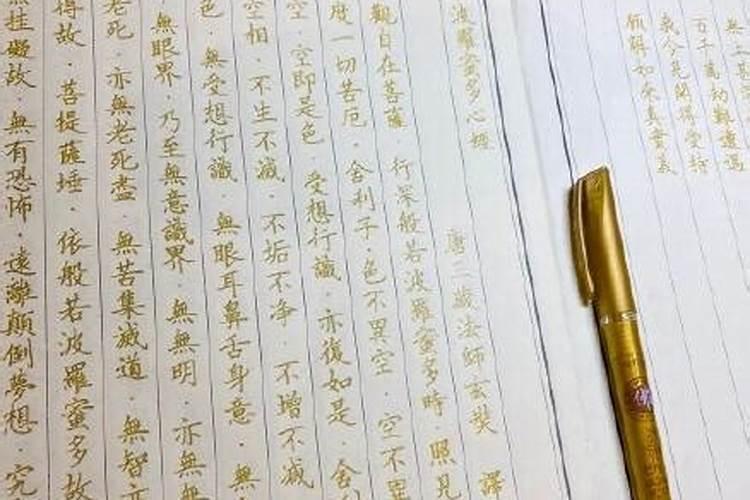 無上甚
百千萬劫難遭遇
我今見聞得受持
願解如來真實義
波羅蜜多心經
唐三藏法師玄奘 譯
觀自在菩薩·行深般若波羅蜜多時·照見
度一切苦厄·舍利子·色不異空·空不異
空·空即是色·受想行識·亦復如是·舍
空相·不生不滅·不垢不净·不增不減
色·無受想行識·無眼耳鼻舌身意·無
無眼界·乃至無意識界·無無明·亦無無
老死·亦無老死盡·無苦集滅道·無智亦
得故·菩提薩埵·依般若波羅蜜多故
無挂礙故·無有恐怖·遠離顛倒夢想·究